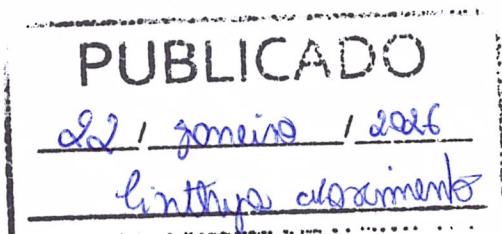 PUBLICADO
22 / Janeiro / 2026
Cinthya Nascimento